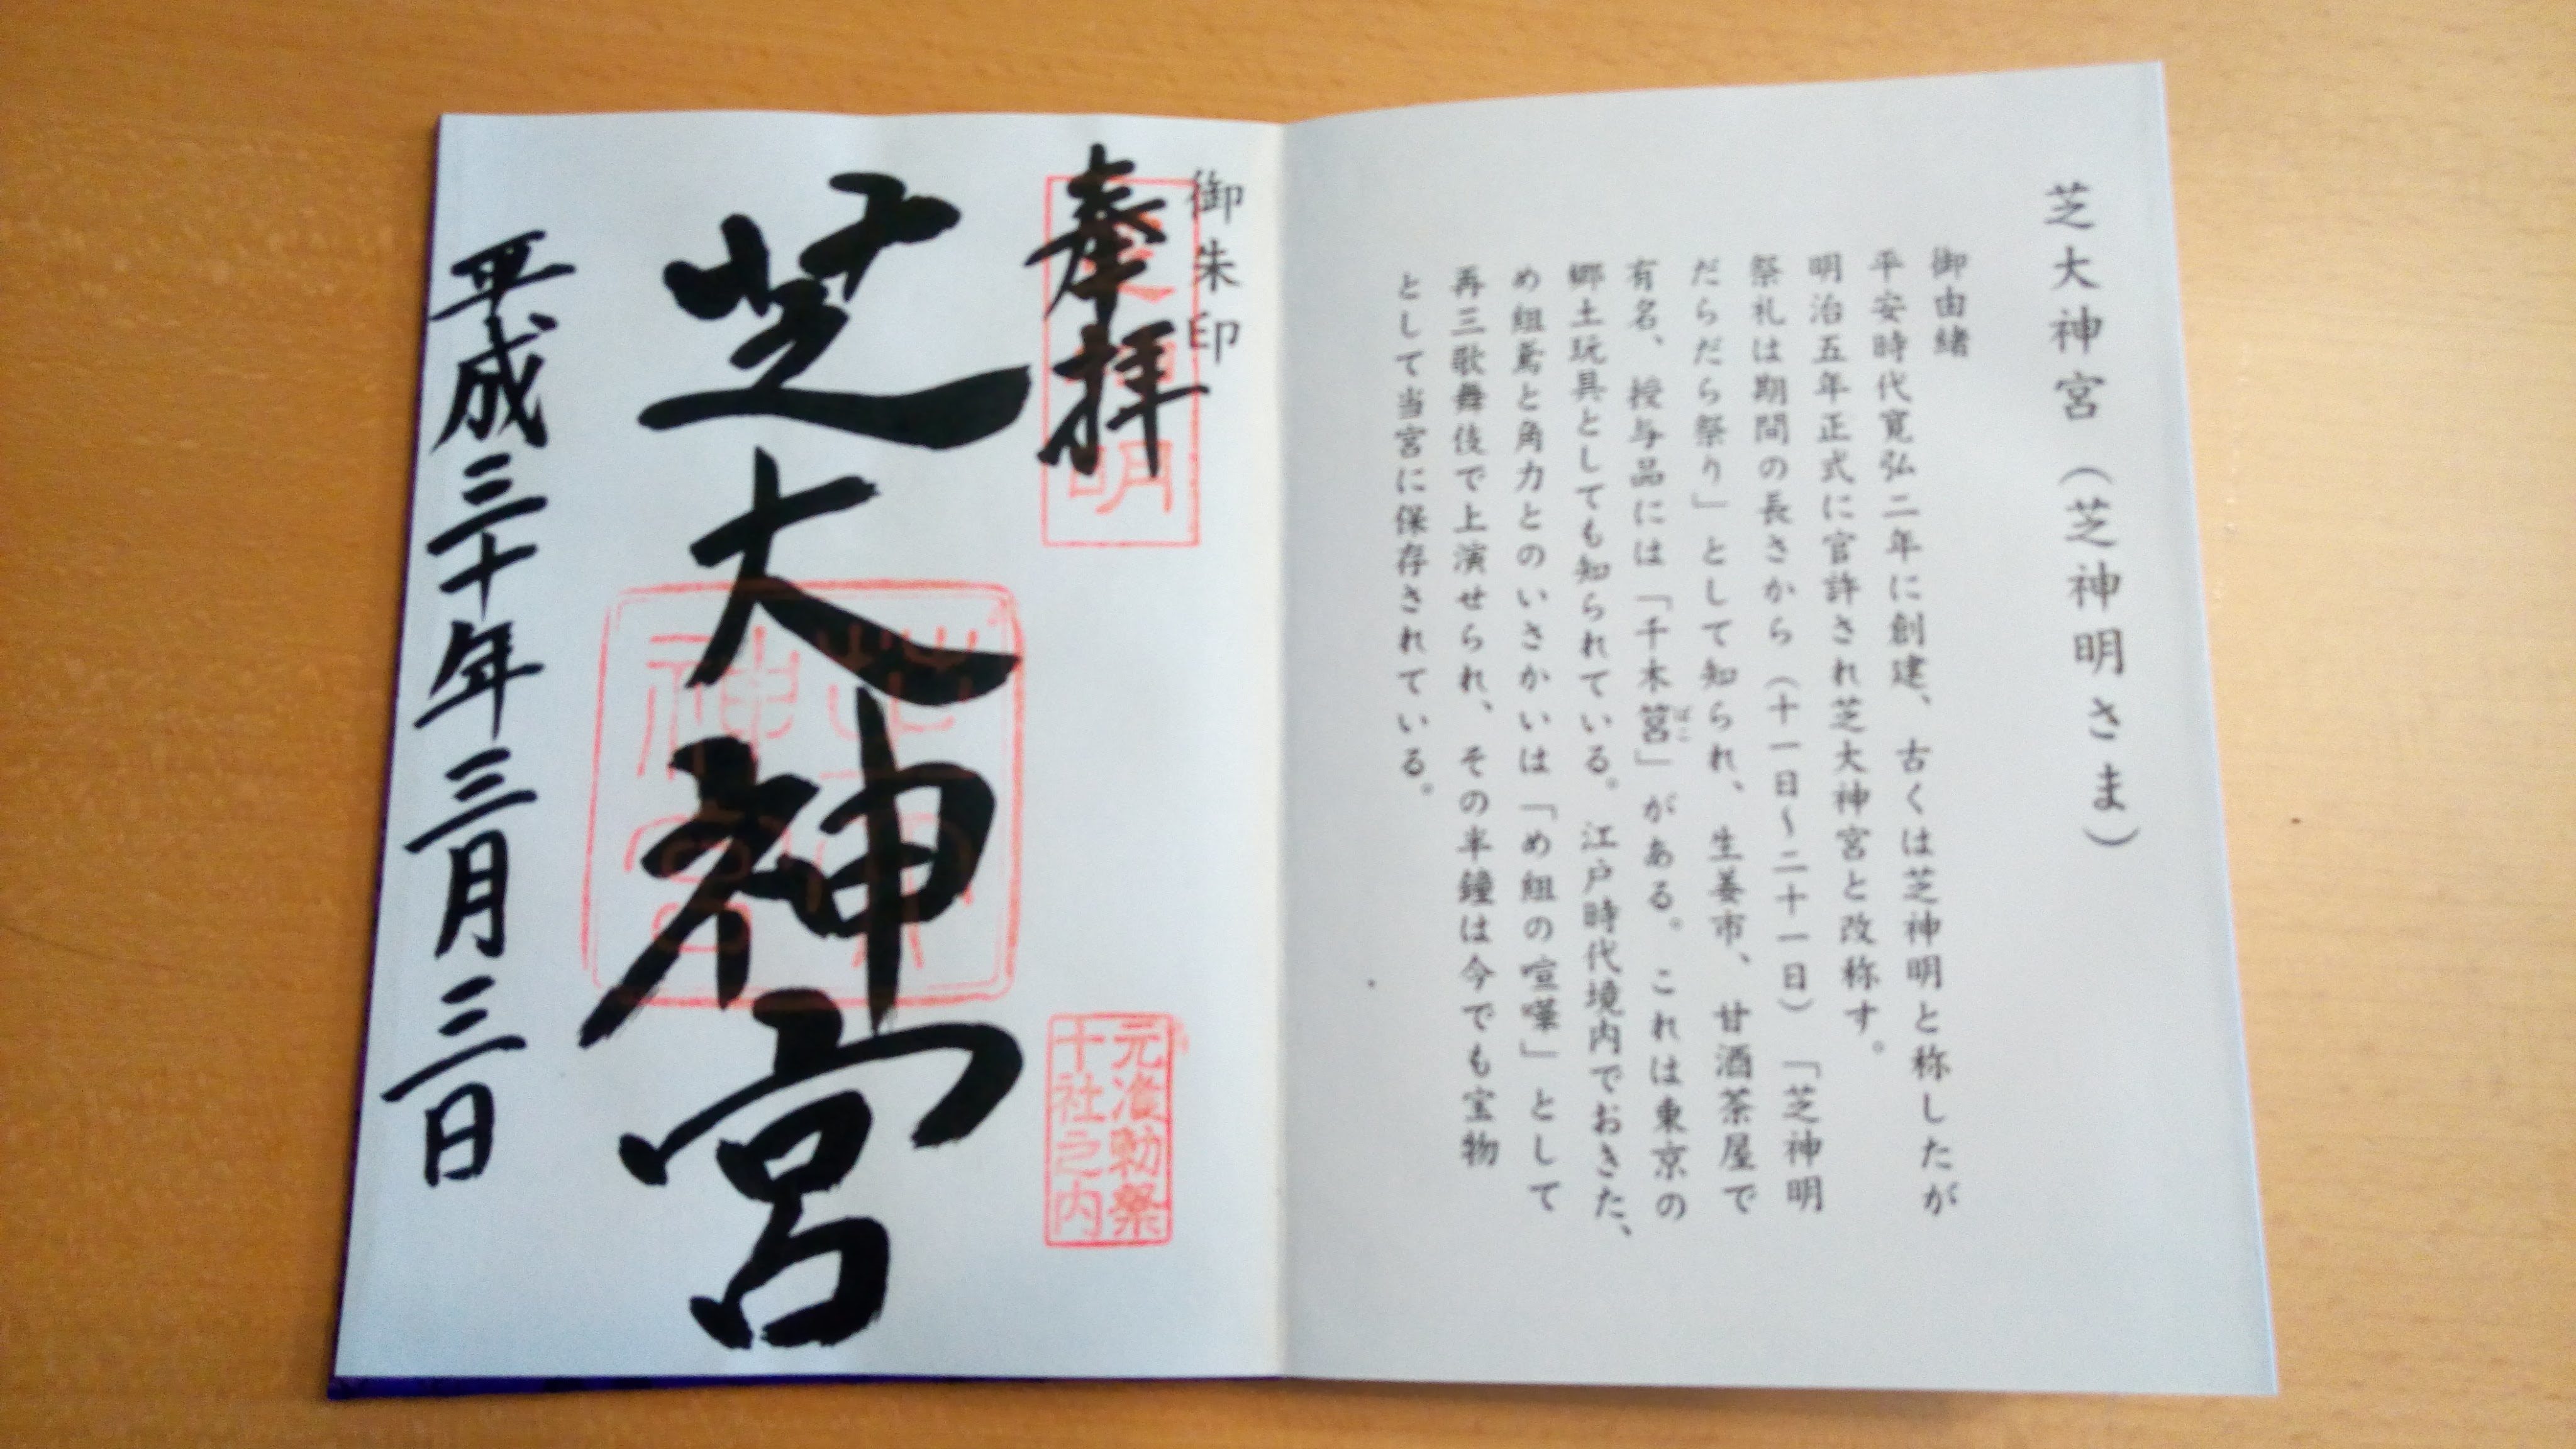 芝大神宮（芝神明さま）
御由緒
平安時代寛弘二年に創建、古くは芝神明と称したが
明治五年正式に官許され芝大神宮と改称す。
祭礼は期間の長さから（十一日～二十一日）「芝神明
だらだら祭り」として知られ、生姜市、甘酒茶屋で
有名、授与品には「千木筥」がある。これは東京の
ばこ
郷土玩具としても知られている。江戸時代境内でおきた、
め組鳶と角力とのいさかいは「め組の喧嘩」として
再三歌舞伎で上演せられ、その半鐘は今でも宝物
として当宮に保存されている。
御朱印
奉拝
元准勅祭
十社之内
芝大神宮
平成三十年三月三日